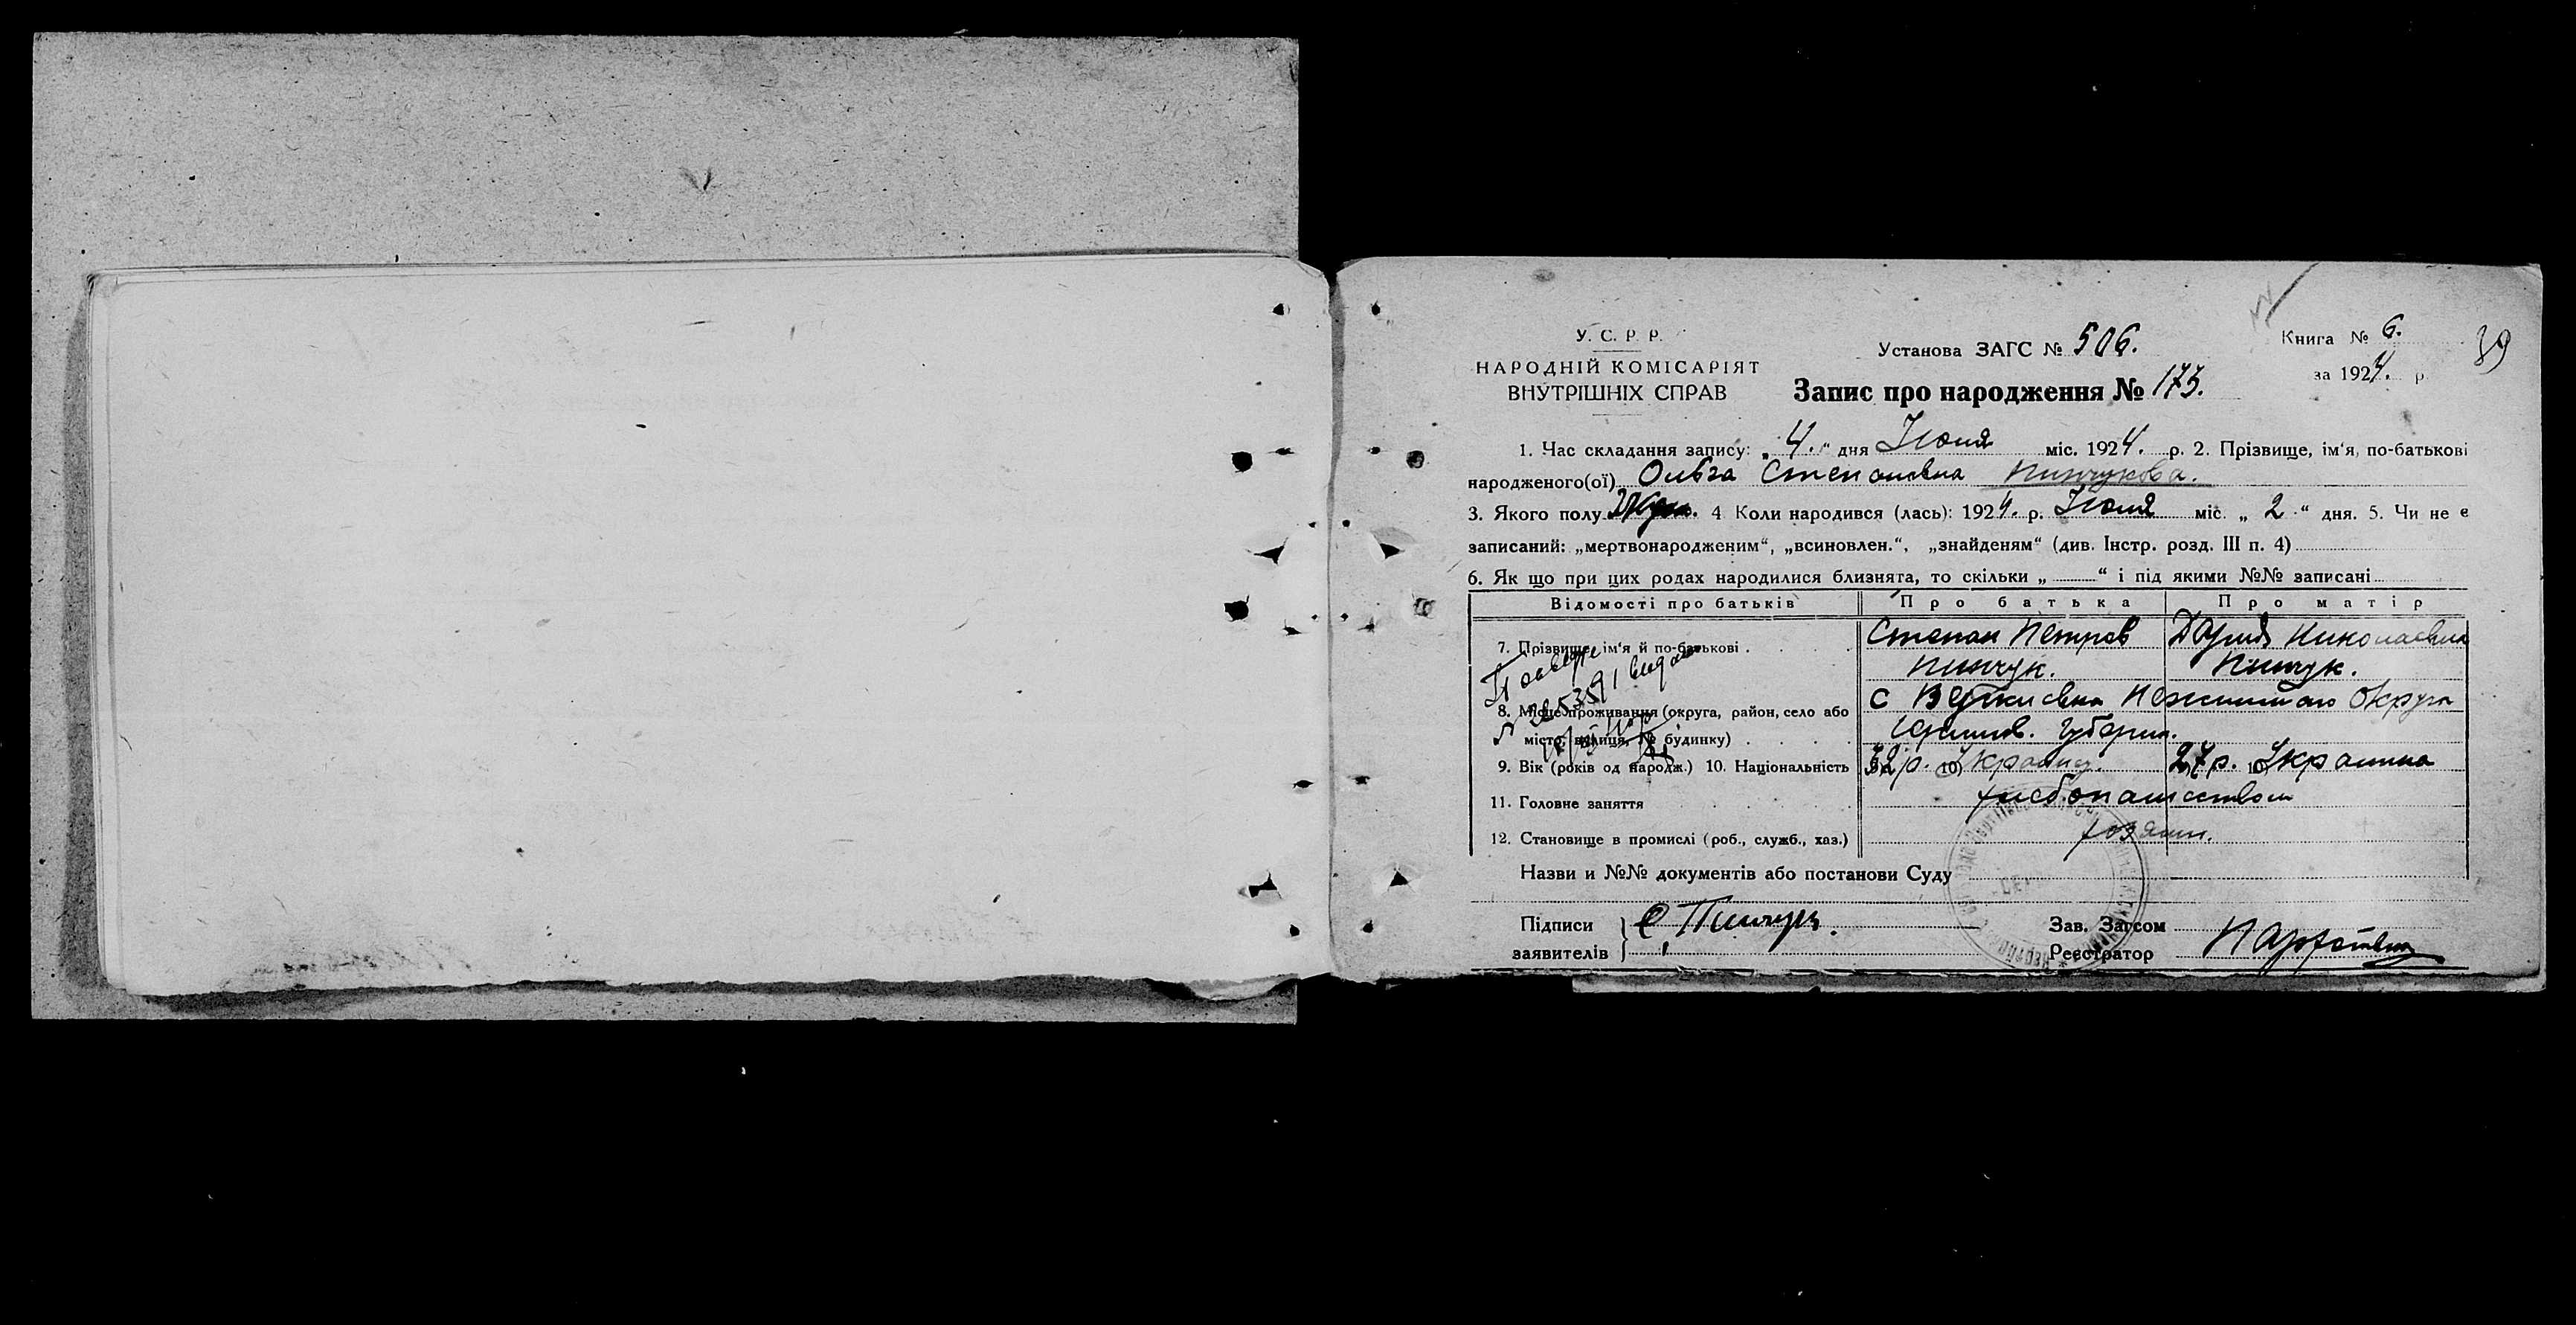 У. С. Р. Р.
НАРОДНІЙ КОМІСАРІЯТ
ВНУТРІШНІХ СПРАВ
Установа ЗАГС № 506.
Запис про народження № 173.
Книга № 6.
за 1924. р.
39
1. Час складання запису: „4.“ дня Июля міс. 1924. р. 2. Прізвище, ім'я, по-батькові
народженого(ої) Ольга Степановна Пинчукова.
3. Якого полу 4 Коли народився (лась): 1924. р. Июля міс. „ 2 “ дня. 5. Чи не є
записаний: „мертвонародженим“, „всиновлен.“, „знайденям“ (див. Інстр. розд. III п. 4)
6. Як що при цих родах народилися близнята, то скільки „ “ і під якими №№ записані
Відомості про батьків Про батька Про матір
7. Прізвище, ім'я й по-батькові Степан Петров Дария Николаевна
Пинчук. Пинчук.
8. Місце проживання (округа, район, село або с Веркиевка Нежинского Округа
місто, вулиця, № будинку) Чернигов. Губернии.
9. Вік (років од народж.) 10. Національність 32 р. 10) Украинц. 27 р. 10) Украинка
11. Головне заняття хлебопашество
12. Становище в промислі (роб., служб., хаз.) хозяин.
Назви и №№ документів або постанови Суду
Підписи С. Пинчук. Зав. Загсом
заявителів Реєстратор